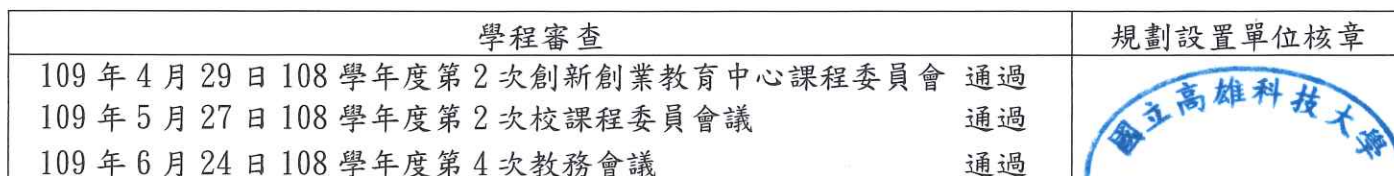 學程審查 規劃設置單位核章
109 年 4 月 29 日 108 學年度第 2 次創新創業教育中心課程委員會 通過
109 年 5 月 27 日 108 學年度第 2 次校課程委員會議 通過
109 年 6 月 24 日 108 學年度第 4 次教務會議 通過
國立高雄科技大學